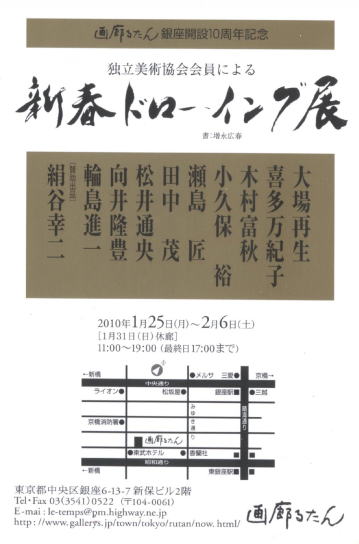 画廊るたん 銀座開設10周年記念
独立美術協会会員による
新春ドローイング展
書:増永広春
大場再生
喜多万紀子
木村富秋
小久保 裕
瀬島 匠
田中 茂
松井通央
向井隆豊
輪島進一
[賛助出品]
絹谷幸二
2010年1月25日(月)~2月6日(土)
[1月31日(日)休廊]
11:00~19:00 (最終日17:00まで)
←新橋
●メルサ 三愛●
京橋→
中央通り
ライオン●
松坂屋●
銀座駅■
●三越
みゆき通り
晴海通り
京橋消防署●
画廊るたん
●東武ホテル
●香蘭社
昭和通り
←新橋
東銀座駅■
東京都中央区銀座6-13-7 新保ビル2階
Tel・Fax 03(3541)0522 (〒104-0061)
E-mai : le-temps@pm.highway.ne.jp
http : //www.gallerys.jp/town/tokyo/rutan/now. html/
画廊るたん